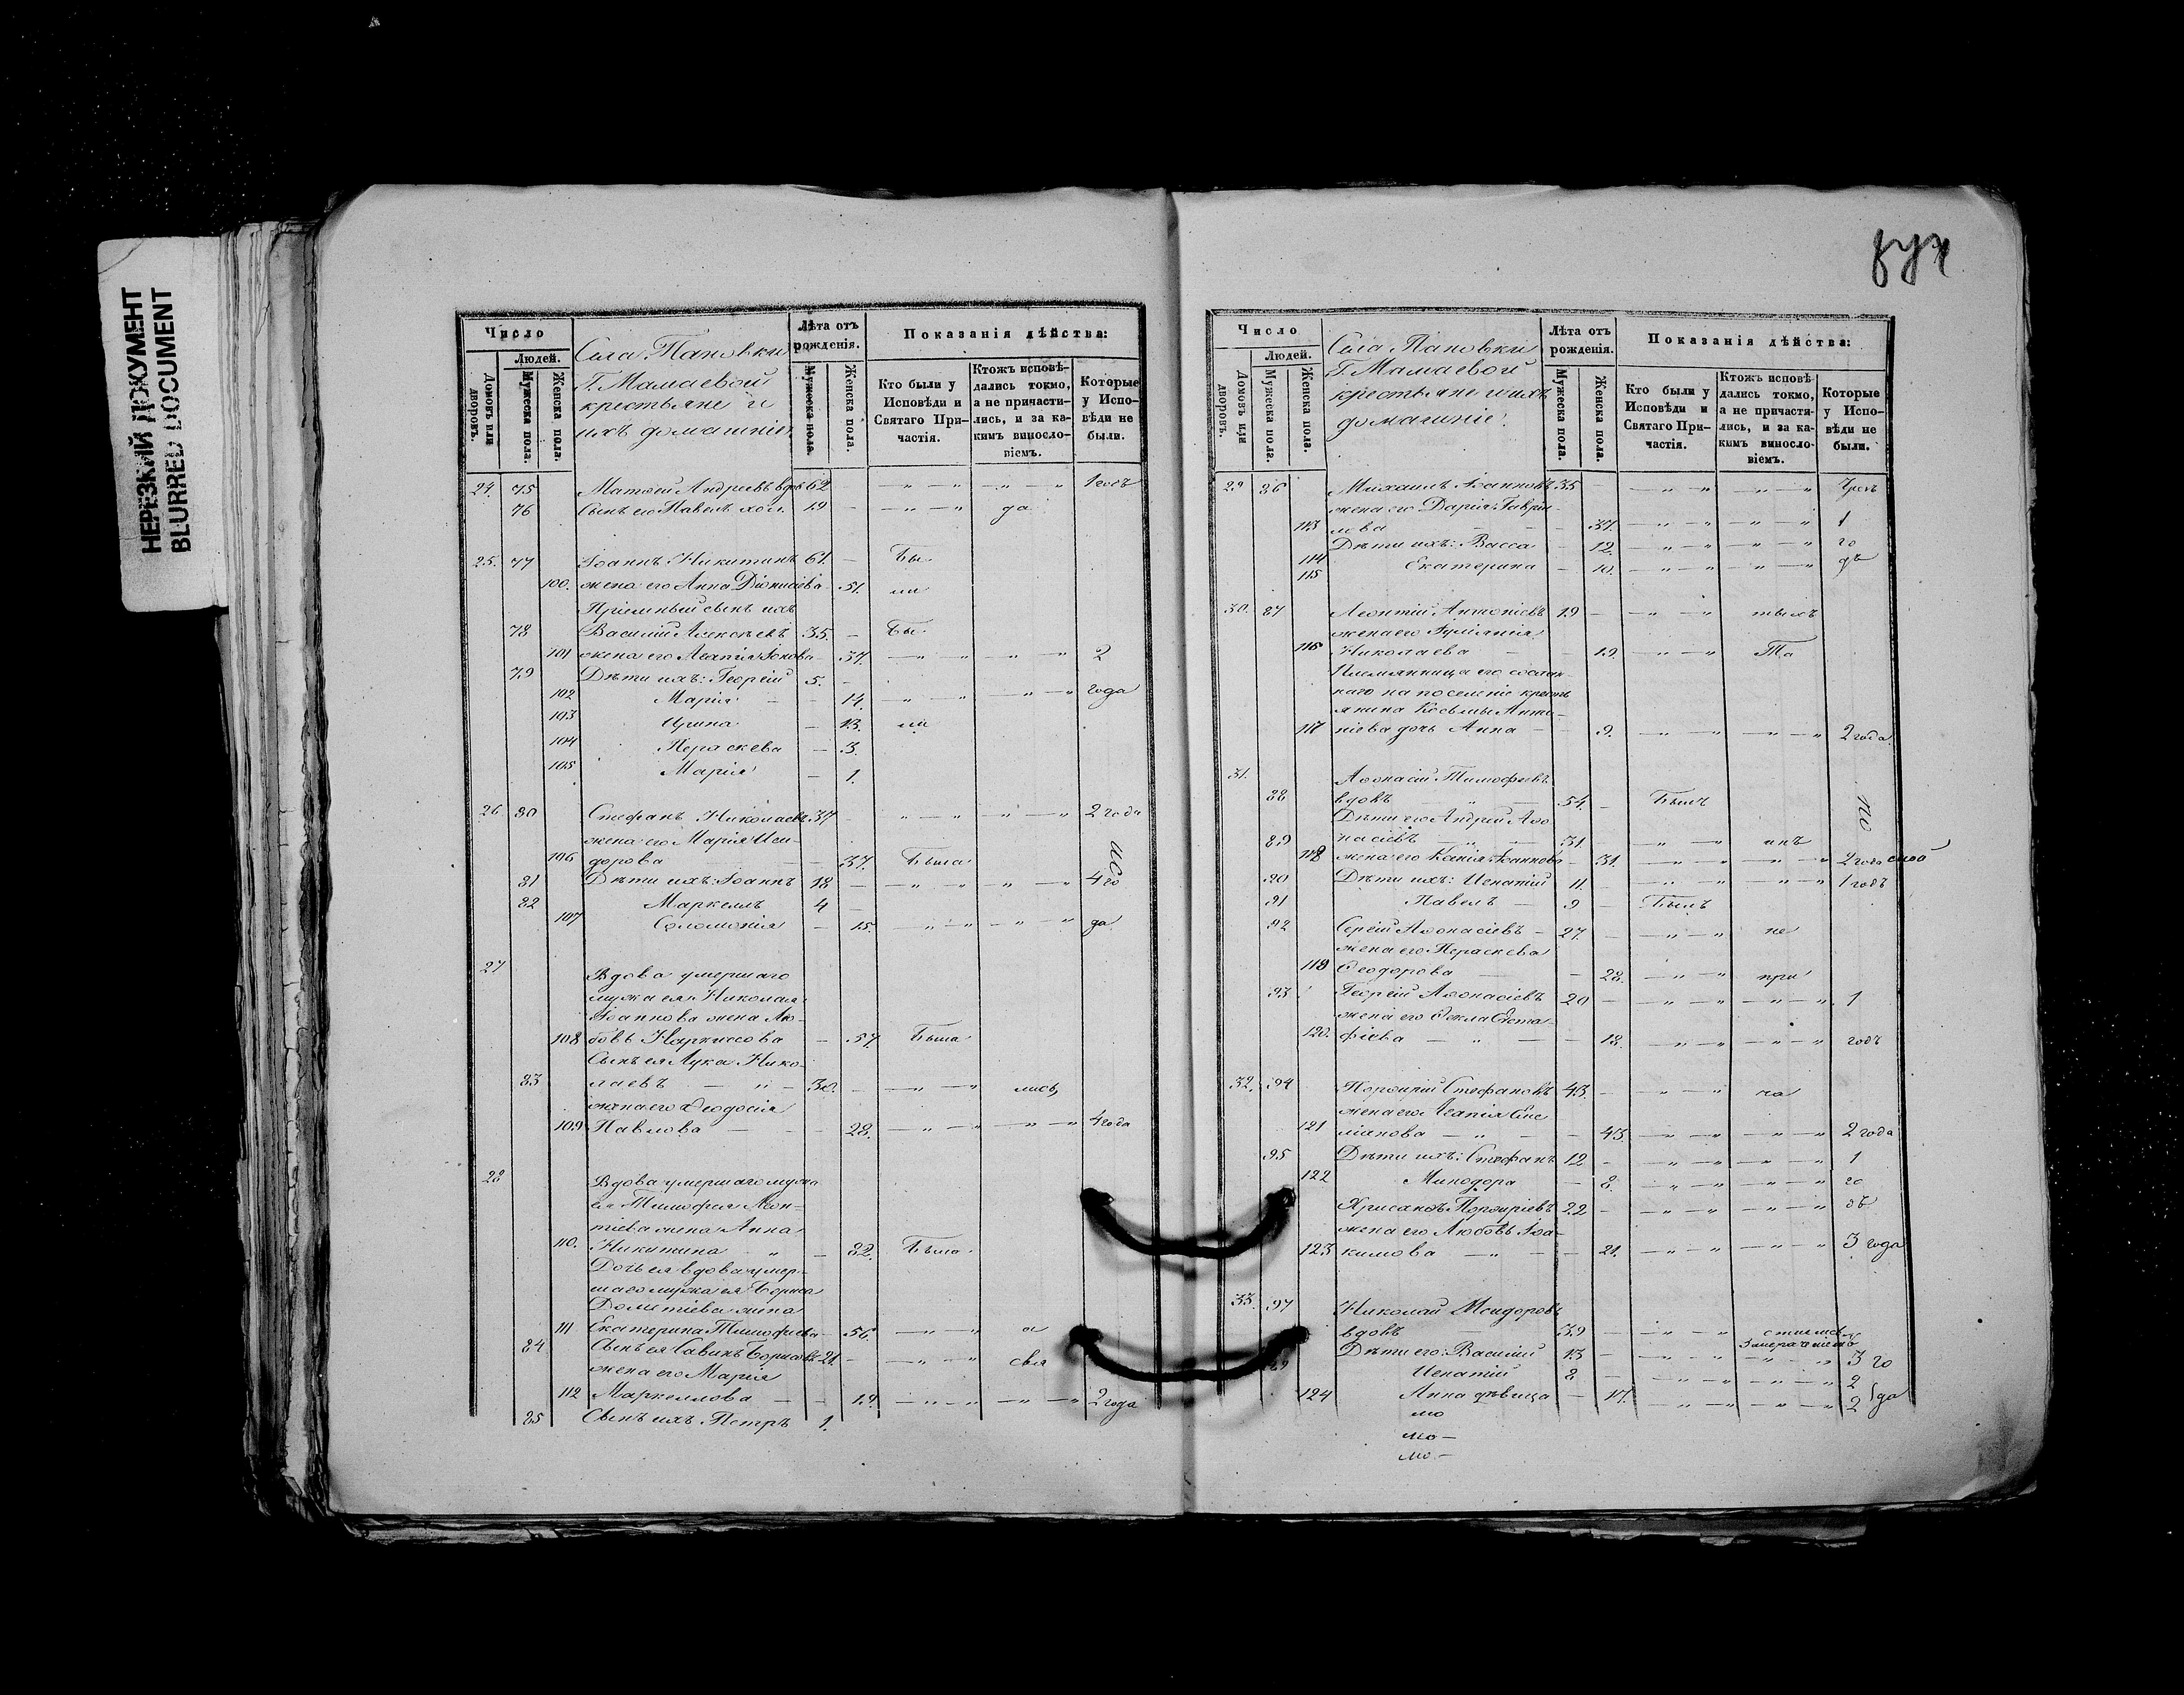 НЕРЕЗКИЙ ДОКУМЕНТ
BLURRED DOCUMENT
Число
Людей.
Домовъ или дворовъ.
Мужеска пола.
Женска пола.
Села Тановки
Г. Мамаевой
крестьяне и
ихъ домашніе
Лѣта отъ рожденія.
Мужеска пола.
Женска пола.
Показанія дѣйства:
Кто были у Исповѣди и Святаго При-частія.
Ктожъ исповѣ-дались токмо, а не причасти-лись, и за ка-кимъ винносло-віемъ.
Которые у Испо-вѣди не были.
24. 75 Матѳей Андреевъ вдов 62 1 годъ
76 Сынъ его Павелъ хол. 19 да
25. 77 Іоаннъ Никитинъ 61. Бы
100. жена его Анна Діонисіева 51. ли
Пріемный сынъ ихъ
78 Василій Алексѣевъ 35. Бы
101 жена его Агапія Іонова 37. 2
79 Дѣти ихъ: Георгій 5.
102 Марія 14. года
103 Ирина 13. ли
104 Параскева 3.
105 Марія 1.
26 80 Стефанъ Николаевъ 37 2 года
жена его Марія Иси-
106 дорова 37. Была
81 Дѣти ихъ: Іоаннъ 18 4 го
82 Маркеллъ 4
107 Соломонія 15. да
27 Вдова умершаго
мужа ея Николая
Іоаннова жена Лю-
108 бовь Наркиссова 57. Была
Сынъ ея Лука Нико-
83 лаевъ 30. лись,
жена его Ѳеодосія
109 Павлова 28. 4 года
28 Вдова умершаго мужа
ея Тимофея Леон-
тіева жена Анна
110. Никитина 82. Была
Дочь ея вдова умер-
шаго мужа ея Бориса
Дометіева жена
111 Екатерина Тимофеева 56. а
84 Сынъ ея Савинъ Борисовъ 21. свя
жена его Марія
112 Маркеллова 19. 2 года
85 Сынъ ихъ Петръ 1.
Число
Людей.
Домовъ или дворовъ.
Мужеска пола.
Женска пола.
Села Тановки
Г. Мамаевой
крестьяне и ихъ
домашніе.
Лѣта отъ рожденія.
Мужеска пола.
Женска пола.
Показанія дѣйства:
Кто были у Исповѣди и Святаго При-частія.
Ктожъ исповѣ-дались токмо, а не причасти-лись, и за ка-кимъ винносло-віемъ.
Которые у Испо-вѣди не были.
29 86 Михаилъ Іоанновъ 35
жена его Дарія Гаври-
113 лова 37. 1
114 Дѣти ихъ: Васса 12. го
115 Екатерина 10. дъ
30. 87 Леонтій Антоніевъ 19
жена его Іуліянія
116 Николаева 19. Та
Племянница его сослан-
наго на поселеніе кресть
янина Косьмы Анто-
117 ніева дочь Анна 9. 2 года
31. Аѳонасій Тимофѣевъ
88 вдовъ 54. Былъ
Дѣти его Андрей Аѳо
89 насіевъ 31. инъ
118 жена его Ксенія Іоаннова 31. 2 года
90 Дѣти ихъ: Игнатій 11. 1 годъ
91 Павелъ 9 Былъ
92 Сергій Аѳонасіевъ 27. не
жена его Параскева
119 Ѳеодорова 28. при
93 Георгій Аѳонасіевъ 20 1
жена его Ѳекла Евста-
120. фіева 18. годъ
32. 94 Порфирій Стефановъ 43. ча
жена его Агапія Еме
121 ліанова 43. 2 года
95 Дѣти ихъ: Стефанъ 12 1
122 Минодора 8. го
Хрисанфъ Порфиріевъ 22 дъ
жена его Любовь Іоа-
123 кимова 21. 3 года
33. 97 Николай Исидоровъ
вдовъ 39
Дѣти его: Василій 13 3 го
Игнатій 8 2
124 Анна дѣвица 17. 2 да